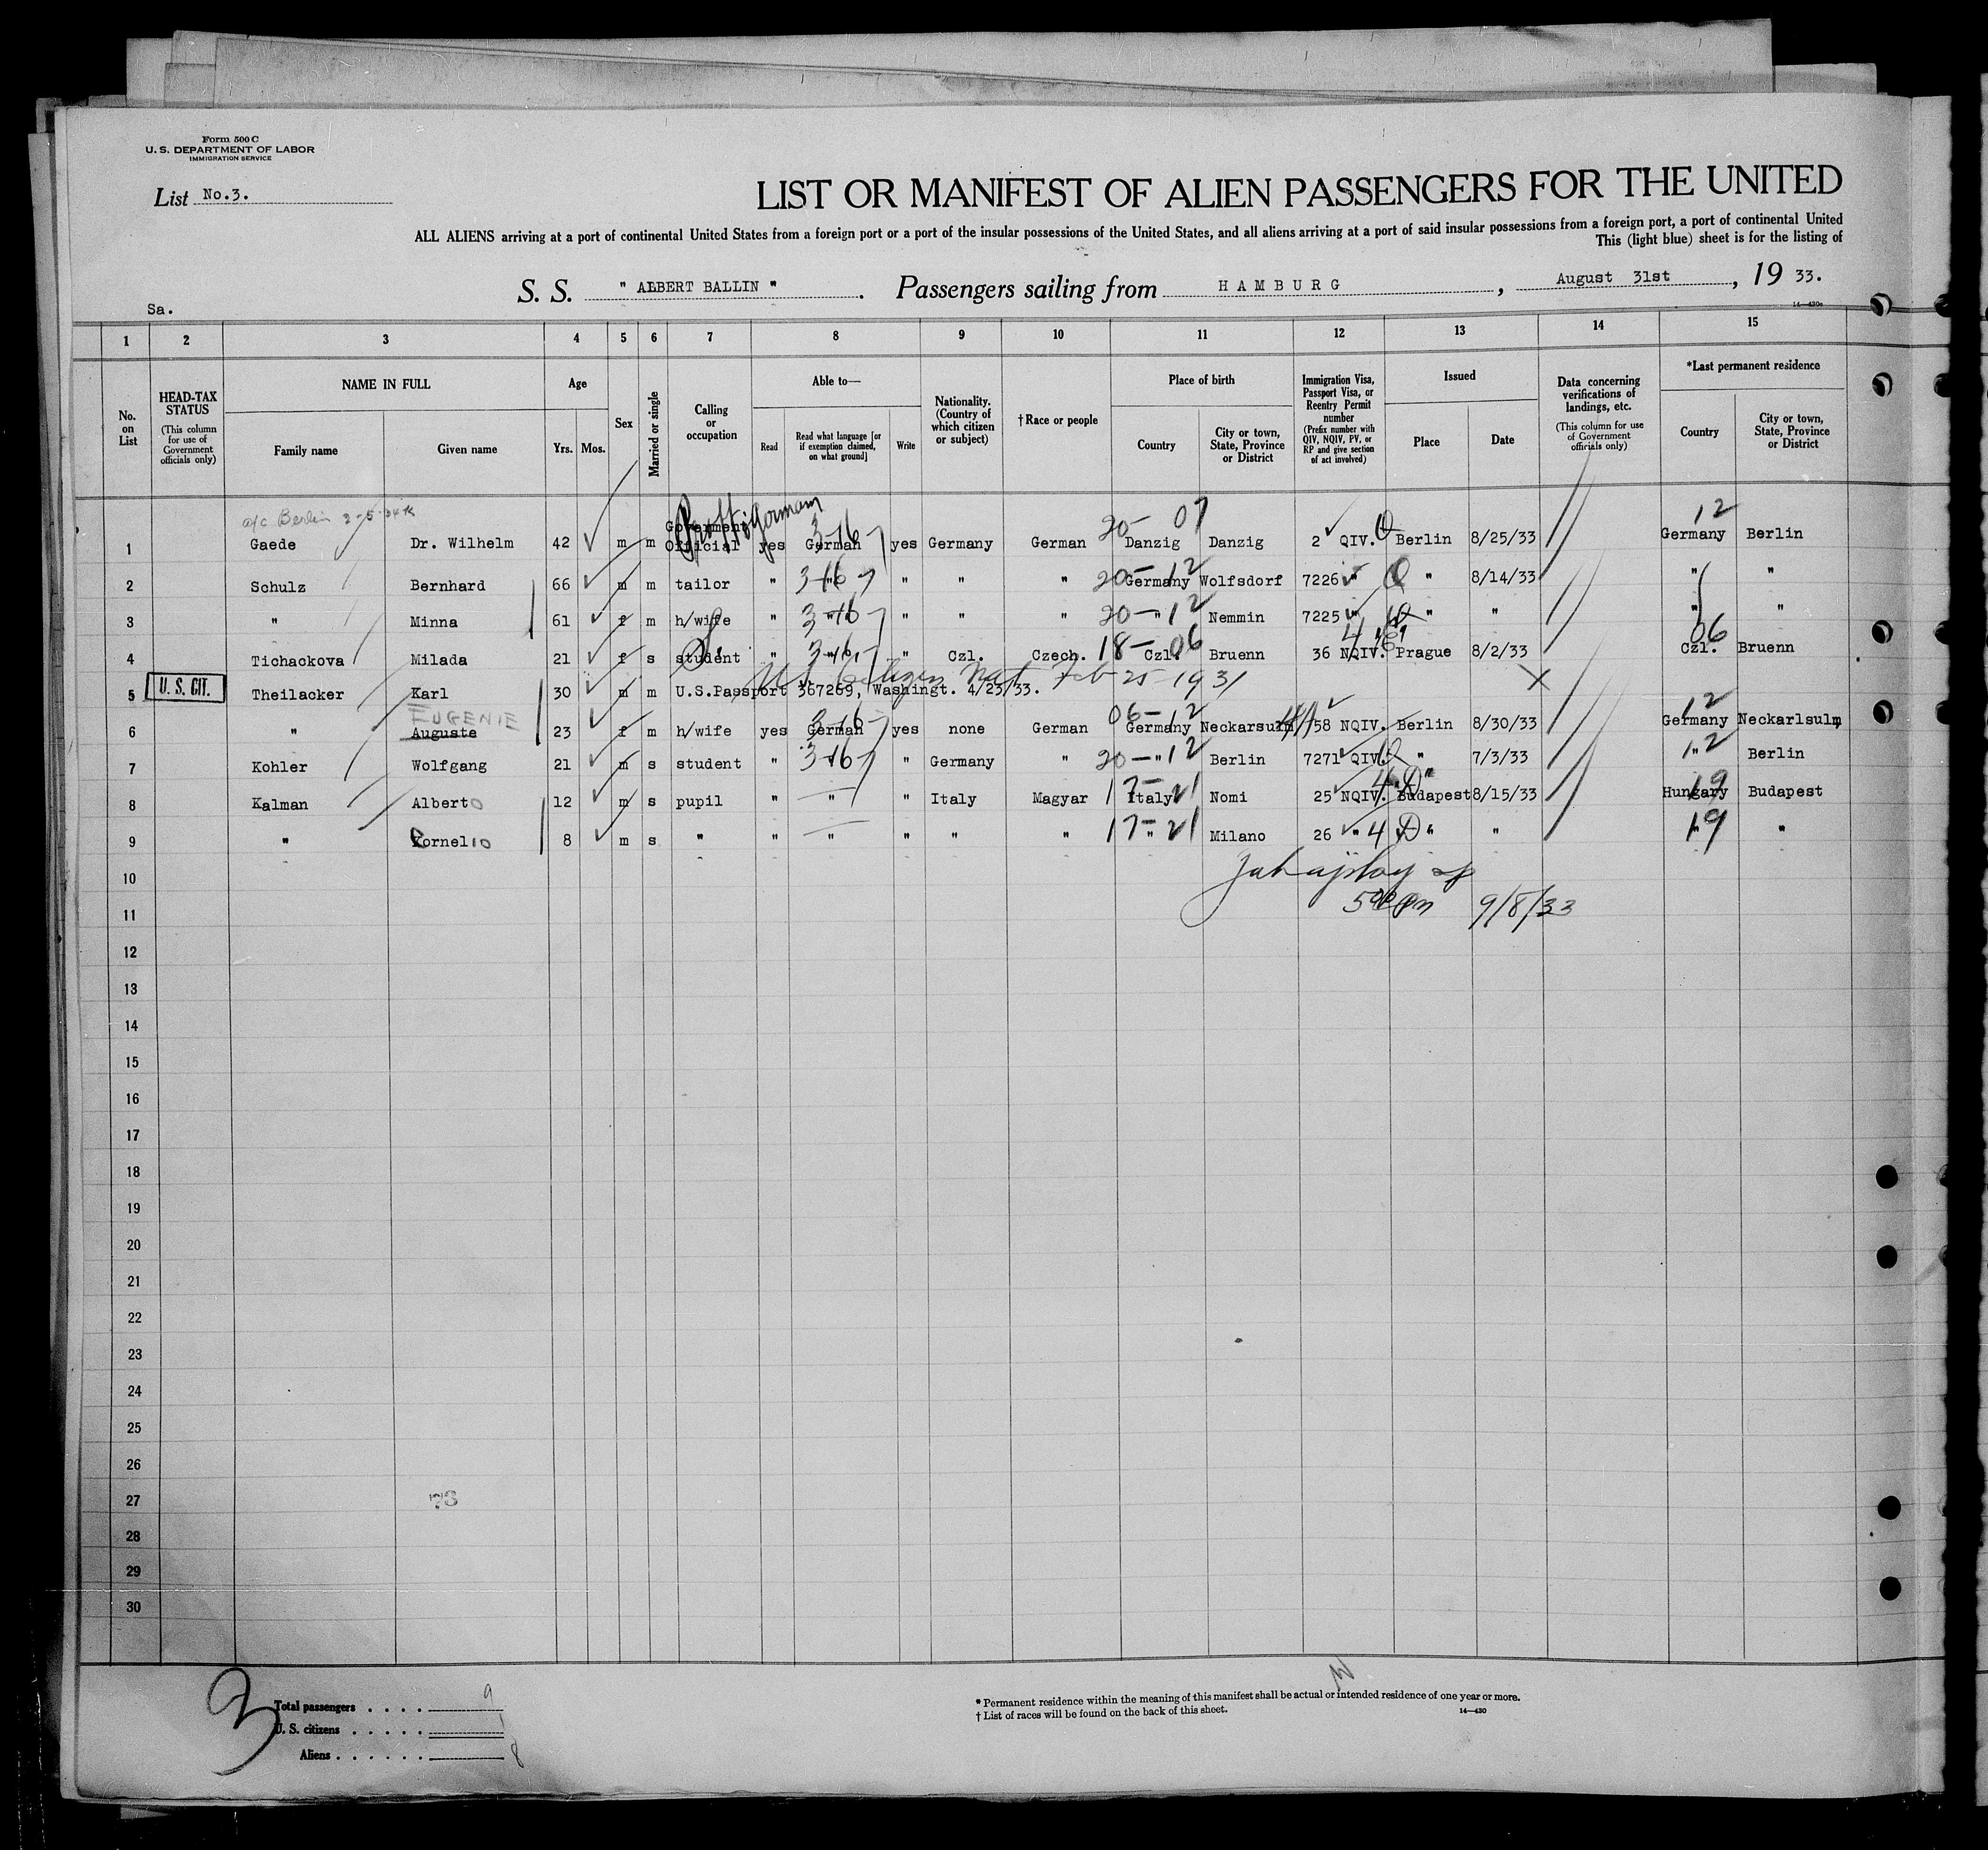 Form 500 C
U. S. DEPARTMENT OF LABOR
IMMIGRATION SERVICE
List No.3.
LIST OR MANIFEST OF ALIEN PASSENGERS FOR THE UNITED
ALL ALIENS arriving at a port of continental United States from a foreign port or a port of the insular possessions of the United States, and all aliens arriving at a port of said insular possessions from a foreign port, a port of continental United
This (light blue) sheet is for the listing of
S. S. " ALBERT BALLIN " . Passengers sailing from HAMBURG , August 31st , 19 33.
14—430c
Sa.
1 2 3 4 5 6 7 8 9 10 11 12 13 14 15
No. on List
HEAD-TAX STATUS (This column for use of Government officials only)
NAME IN FULL
Family name Given name
Age
Yrs. Mos.
Sex
Married or single
Calling or occupation
Able to—
Read Read what language [or if exemption claimed, on what ground] Write
Nationality. (Country of which citizen or subject)
† Race or people
Place of birth
Country City or town, State, Province or District
Immigration Visa, Passport Visa, or Reentry Permit number (Prefix number with QIV, NQIV, PV, or RP and give section of act involved)
Issued
Place Date
Data concerning verifications of landings, etc. (This column for use of Government officials only)
*Last permanent residence
Country City or town, State, Province or District
a/c Berlin 2-5-34
1 Gaede Dr. Wilhelm 42 m m Government Official yes German 3-16 yes Germany German 20- 07 Danzig Danzig 2 QIV. Berlin 8/25/33 12 Germany Berlin
2 Schulz Bernhard 66 m m tailor " " 3-16 " " " 20-12 Germany Wolfsdorf 7226 " " 8/14/33 " "
3 " Minna 61 f m h/wife " " 3-16 " " " 20-12 " Nemmin 7225 " " " " "
4 Tichackova Milada 21 f s student " " 3-16 " Czl. Czech. 18-06 Czl. Bruenn 36 NQIV. Prague 8/2/33 06 Czl. Bruenn
5 U. S. CIT. Theilacker Karl 30 m m U.S.Passport 367269, Washingt. 4/23/33. US Citizen Nat Feb 25-1931 X
6 " Auguste EUGENIE 23 f m h/wife yes German 3-16 yes none German 06-12 Germany Neckarsulm 58 NQIV. Berlin 8/30/33 12 Germany Neckarlsulm
7 Kohler Wolfgang 21 m s student " " 3-16 " Germany " 20-12 " Berlin 7271 QIV. " 7/3/33 12 " Berlin
8 Kalman Alberto 12 m s pupil " " " Italy Magyar 17-21 Italy Nomi 25 NQIV. 4 D Budapest 8/15/33 19 Hungary Budapest
9 " Kornelio 8 m s " " " " " " 17-21 " Milano 26 " 4 D " " 19 " "
10
11 9/8/33
12
13
14
15
16
17
18
19
20
21
22
23
24
25
26
27
28
29
30
3
Total passengers . . . . 9
U. S. citizens . . . . . 1
Aliens . . . . . . 8
* Permanent residence within the meaning of this manifest shall be actual or intended residence of one year or more.
† List of races will be found on the back of this sheet.
14—430